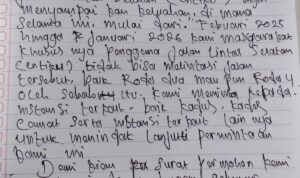 menyampai kan keluhan, di mana
Selama ini mulai dari. Februari 2025
hingga 7 Januari 2026 kami masyarakat
khusus nya pengguna Jalan lintas Selatan
tidak bisa melintasi jalan
tersebut, baik Roda dua mau pun Roda 4
oleh sebab itu. Kami meminta kepada.
instansi terkait. baik kadus, kades
Camat serta instansi terkait lain nya
untuk menindak lanjuti permintaan
kami ini
Demi kian surat permohon kami